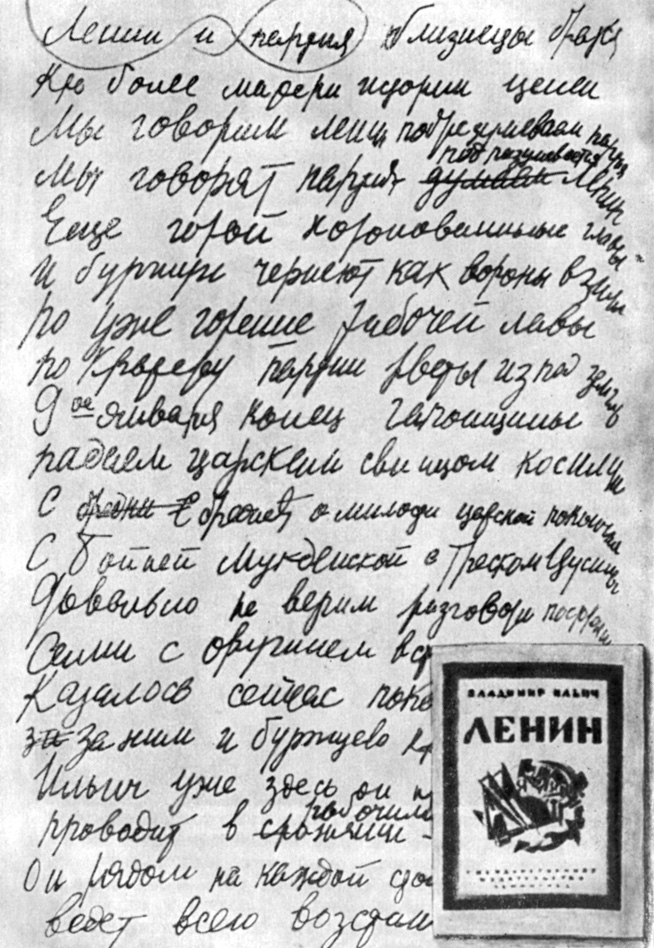 Ленин и партия близнецы братья
Кто более матери истории ценен
Мы говорим ленин подразумеваем партия
подразумевается
Мы говорят партия думаем Ленин
Еще горой коронованные главы
И буржуи чернеют как вороны в зиме
Но уже горение рабочей лавы
По кратеру партии рвется из под земли
9ое января конец гапонщины
падаем царским свинцом косимы
С бредни С бредней о милости царской покончено
С бойней Мукденской с треском Цусимы
Довольно не верим разговорам посторонним
Сами с оружием
Казалось сейчас
за ним и буржуево
Ильич уже здесь он
рабочими
проводит в сражении
Он рядом на каждой
ведет всего
ВЛАДИМИР ИЛЬИЧ
ЛЕНИН